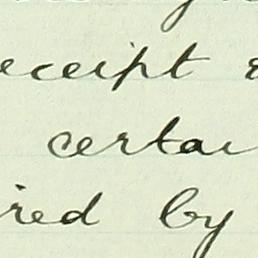 eceipt
certai
ired by